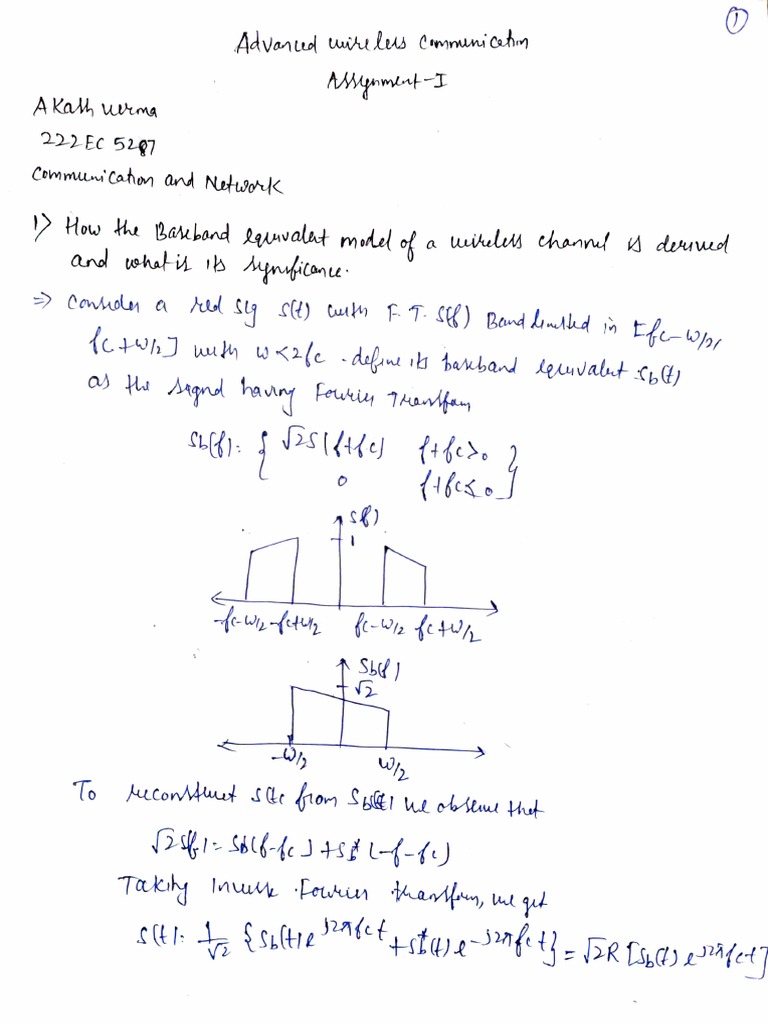 1
Advanced wireless Communication
Assignment-I
Akash verma
222EC5287
Communication and Network
1) How the Baseband equivalent model of a wireless channel is derived
and what is its significance.
⇒ Consider a real sig s(t) with F.T. S(f) Band limited in [fc-W/2,
fc+W/2] with W<2fc. define its baseband equivalent Sb(t)
as the signal having Fourier Transform
Sb(f)= { √2S(f+fc) f+fc>0 }
0 f+fc≤0
S(f)
1
-fc-W/2 -fc+W/2 fc-W/2 fc+W/2
Sb(f)
√2
-W/2 W/2
To reconstruct s(t) from Sb(t) we observe that
√2S(f)= Sb(f-fc)+Sb*(-f-fc)
Taking Inverse Fourier transform, we get
s(t)= 1/√2 {Sb(t)e^j2πfct + Sb*(t)e^-j2πfct} = √2R[Sb(t)e^j2πfct]